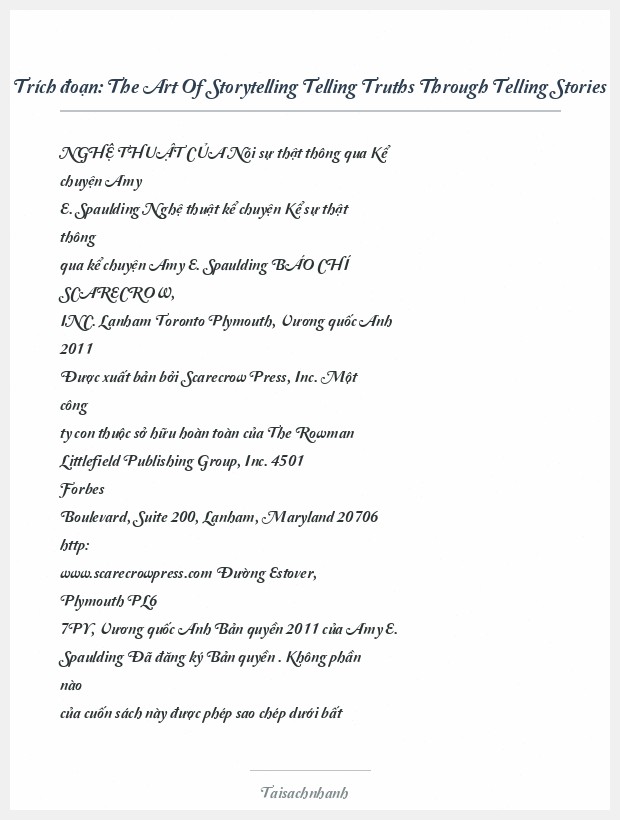 Trích đoạn: The Art Of Storytelling Telling Truths Through Telling Stories
NGHỆ THUẬT CỦA Nói sự thật thông qua Kể
chuyện Amy
E. Spaulding Nghệ thuật kể chuyện Kể sự thật
thông
qua kể chuyện Amy E. Spaulding BÁO CHÍ
SCARECROW,
INC. Lanham Toronto Plymouth, Vương quốc Anh
2011
Được xuất bản bởi Scarecrow Press, Inc. Một
công
ty con thuộc sở hữu hoàn toàn của The Rowman
Littlefield Publishing Group, Inc. 4501
Forbes
Boulevard, Suite 200, Lanham, Maryland 20706
http:
www.scarecrowpress.com Đường Estover,
Plymouth PL6
7PY, Vương quốc Anh Bản quyền 2011 của Amy E.
Spaulding Đã đăng ký Bản quyền . Không phần
nào
của cuốn sách này được phép sao chép dưới bất
Taisachnhanh